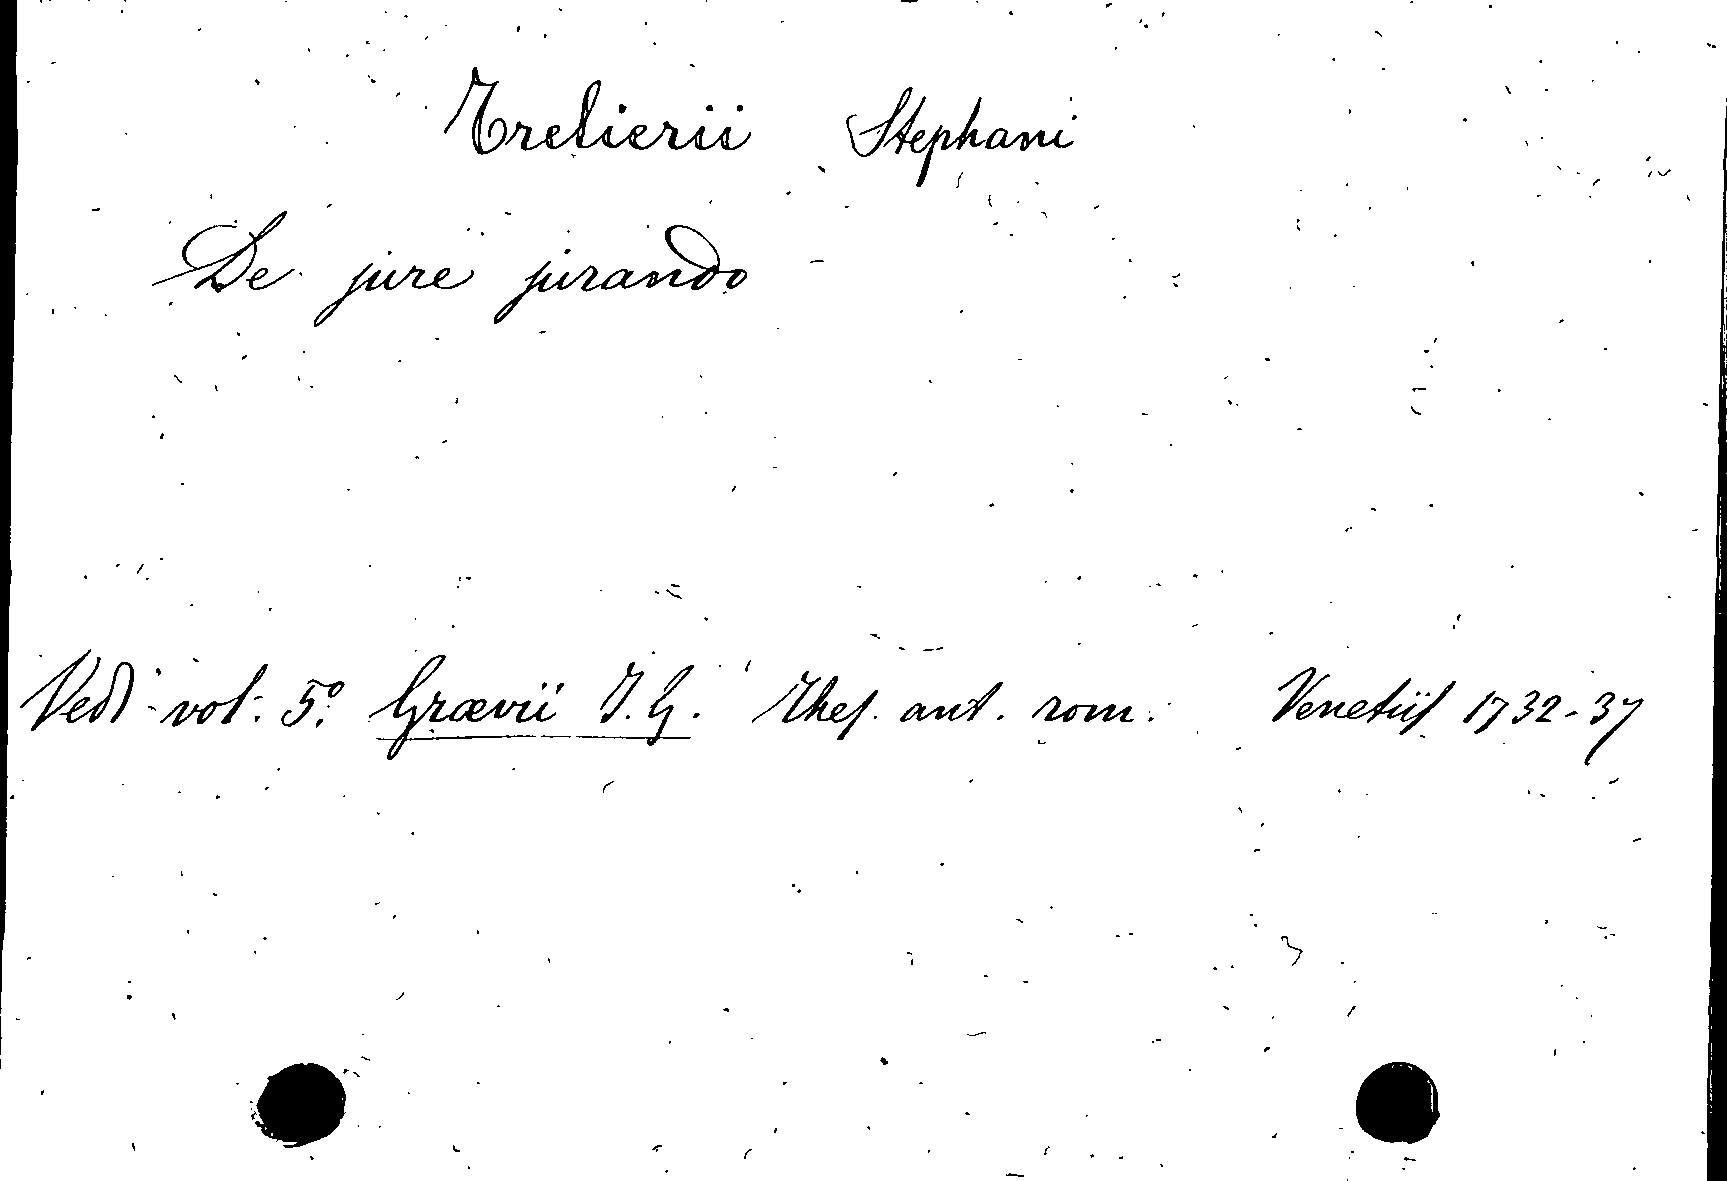 Trelierii Stephani
De jure jurando
Vedi vol. 5º. Grævii J. G. Thes. ant. rom. Venetiis 1732-37